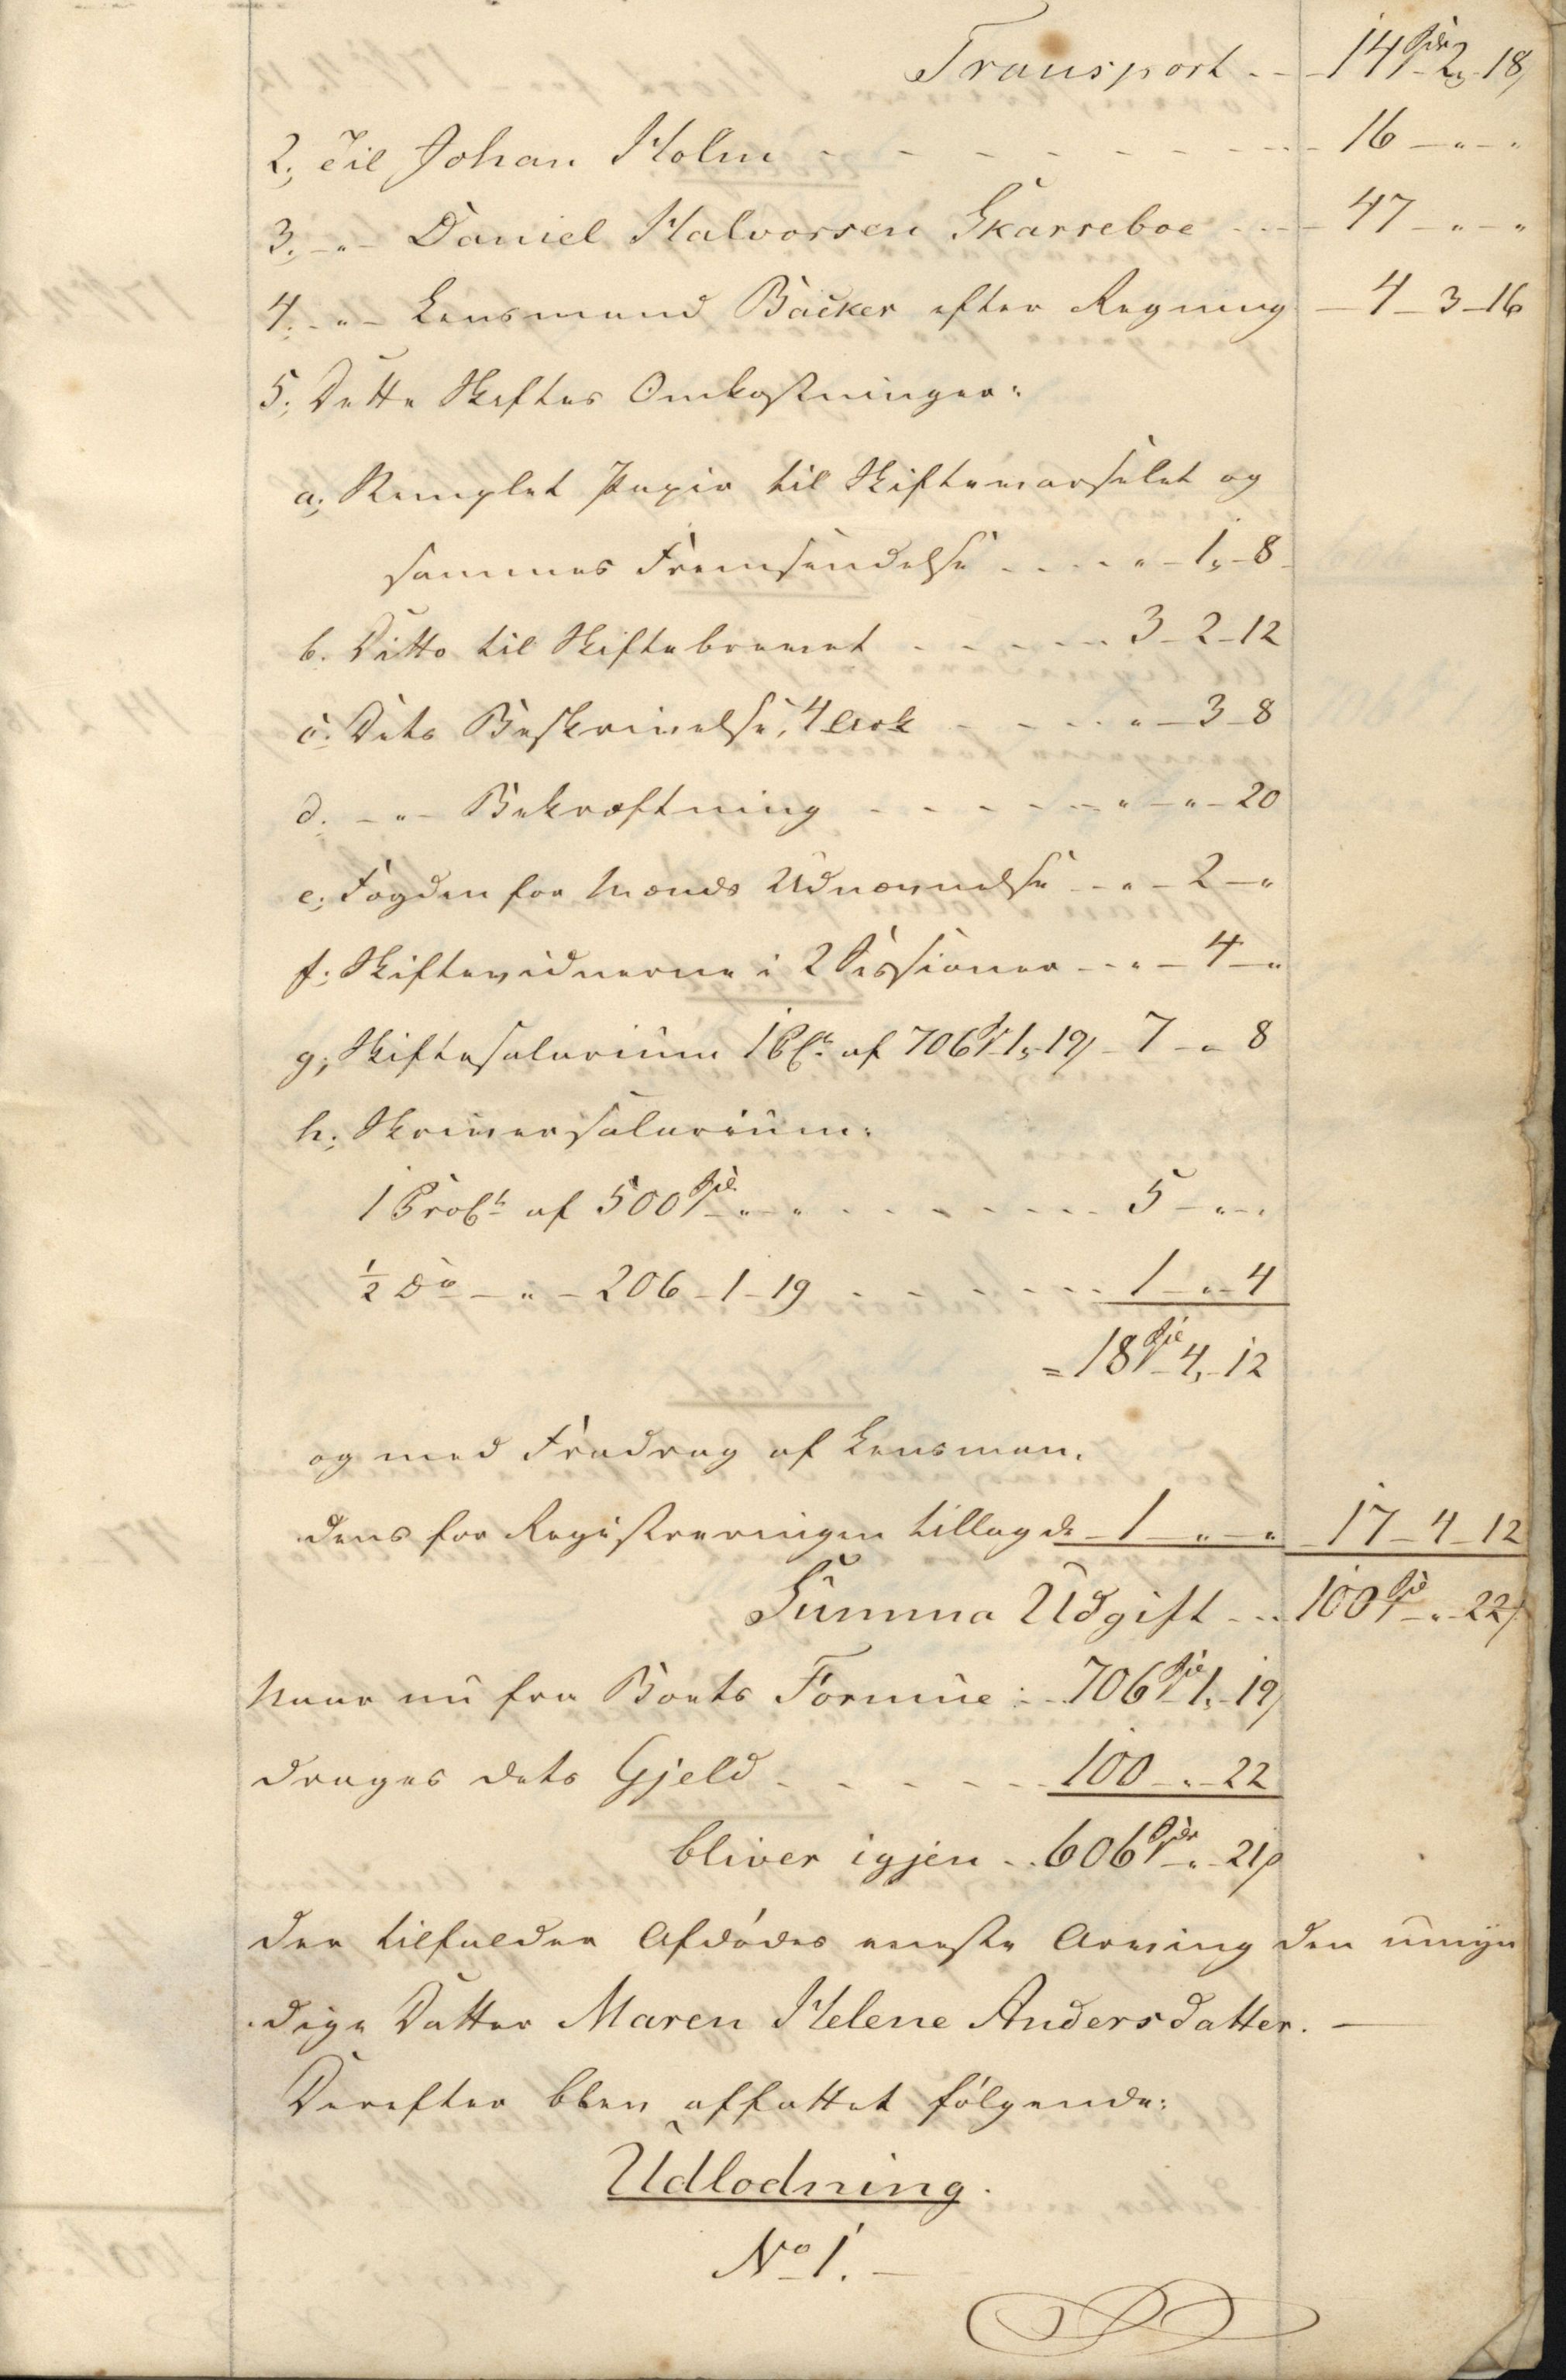 Transport - - 14 Spd 2 " 18 ß
2; Til Johan Holm - - - - - - - - - 16 - " - "
3; - " - Daniel Halvorsen Skarreboe - - - 47 - " - "
4; - " - Lensmand Backer efter Regning - 4 - 3 - 16
5; Dette Skiftes Omkostninger:
a; Stemplet Papir til Skifteværselet og
sammes Fremsendelse - - - - " - 1 - 8
b. Ditto til Skiftebrevet - - - - - 3 - 2 - 12
c. Dets Beskrivelse, 4 Ark - - - - " - 3 - 8
d. - " - Bekræftning - - - - - " - " - 20
e; Fogden for Mænds Udnævnelse - - " - 2 - "
f; Skiftevidnerne i 2 Sessioner - - " - 4 - "
g; Skiftesalarium 1 PCt. af 706 Spd 1 - 19 ß - 7 - " 8
h; Skriversalarium:
1 ProCt. af 500 Spd " - " - - - - - - 5 - " - "
½ do - " - 206 - 1 - 19 - - - - - - 1 - " - 4
= 18 Spd 4 - 12
og med Fradrag af Lensman-
dens for Registreringen tillagde - 1 - " - " 17 - 4 - 12
Summa Udgift - - 100 Spd " - 22 ß
Naar nu fra Boets Formue : - 706 Spd 1 - 19 ß
drages dets Gjeld - - - - - - 100 - " - 22
bliver igjen - - 606 Spd " - 21 ß
der tilfalder Afdødes eneste Arving den umyn-
dige Datter Maren Helene Andersdatter. -
Derefter blev affattet følgende:
Udlodning.
No 1. -